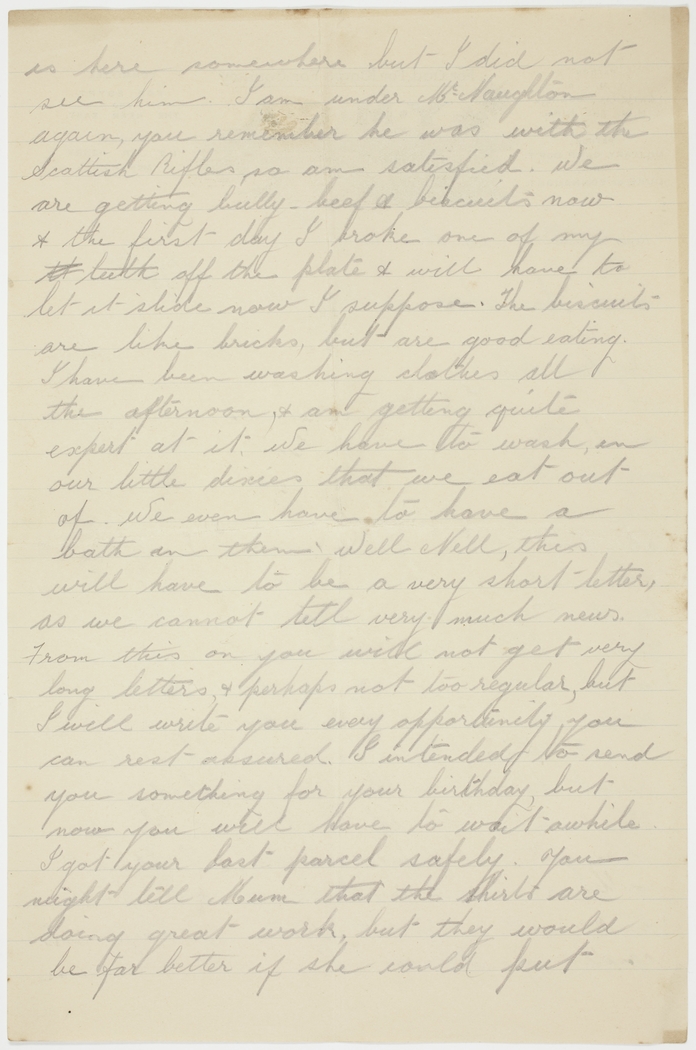 is here somewhere but I did not
see him. I am under McNaughton
again, you remember he was with the
Scottish Rifles, so am satisfied. We
are getting bully-beef & biscuits now
& the first day I broke one of my
teeth off the plate & will have to
let it slide now I suppose. The biscuits
are like bricks, but are good eating.
I have been washing clothes all
the afternoon, & am getting quite
expert at it. We have to wash in
our little dixies that we eat out
of. We even have to have a
bath in them. Well Nell, this
will have to be a very short letter,
as we cannot tell very much news.
From this on you will not get very
long letters, & perhaps not too regular, but
I will write you every opportunity, you
can rest assured. I intended to send
you something for your birthday, but
now you will have to wait awhile.
I got your last parcel safely. You
might tell Mum that the shirts are
doing great work, but they would
be far better if she could put